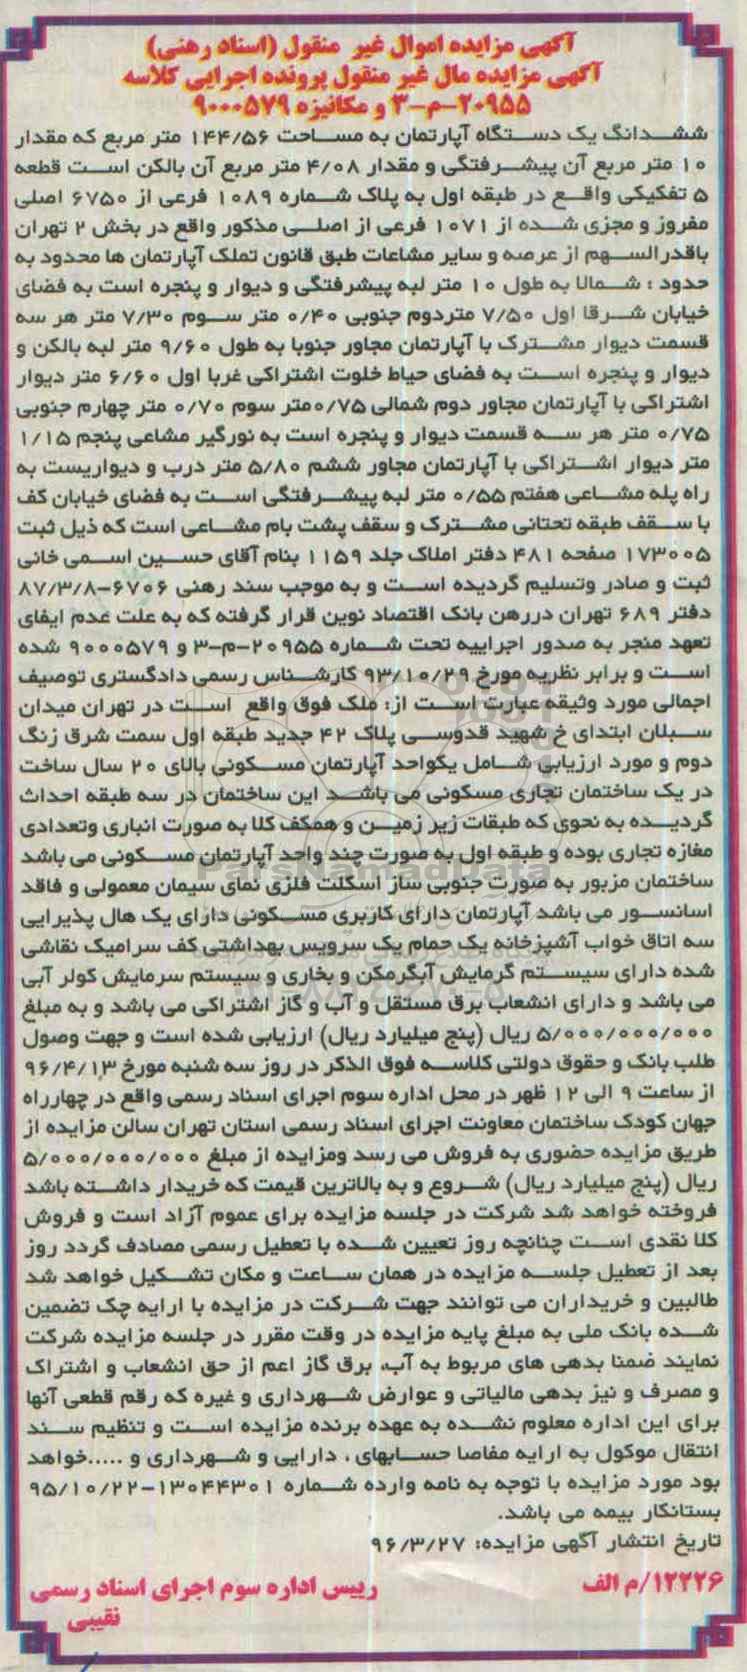 آگهی مزایده اموال غیر منقول (اسناد رهنی)
آگهی مزایده مال غیر منقول پرونده اجرایی کلاسه
۲۰۹۵۵-م-۳ و مکانیزه ۹۰۰۰۵۷۹
ششدانگ یک دستگاه آپارتمان به مساحت ۱۴۴/۵۶ متر مربع که مقدار
۱۰ متر مربع آن پیشرفتگی و مقدار ۴/۰۸ متر مربع آن بالکن است قطعه
۵ تفکیکی واقع در طبقه اول به پلاک شماره ۱۰۸۹ فرعی از ۶۷۵۰ اصلی
مفروز و مجزی شده از ۱۰۷۱ فرعی از اصلی مذکور واقع در بخش ۲ تهران
باقدرالسهم از عرصه و سایر مشاعات طبق قانون تملک آپارتمان ها محدود به
حدود : شمالا به طول ۱۰ متر لبه پیشرفتگی و دیوار و پنجره است به فضای
خیابان شرقا اول ۷/۵۰ متردوم جنوبی ۰/۴۰ متر سوم ۷/۳۰ متر هر سه
قسمت دیوار مشترک با آپارتمان مجاور جنوبا به طول ۹/۶۰ متر لبه بالکن و
دیوار و پنجره است به فضای حیاط خلوت اشتراکی غربا اول ۶/۶۰ متر دیوار
اشتراکی با آپارتمان مجاور دوم شمالی ۰/۷۵متر سوم ۰/۷۰ متر چهارم جنوبی
۰/۷۵ متر هر سه قسمت دیوار و پنجره است به نورگیر مشاعی پنجم ۱/۱۵
متر دیوار اشتراکی با آپارتمان مجاور ششم ۵/۸۰ متر درب و دیواریست به
راه پله مشاعی هفتم ۰/۵۵ متر لبه پیشرفتگی است به فضای خیابان کف
با سقف طبقه تحتانی مشترک و سقف پشت بام مشاعی است که ذیل ثبت
۱۷۳۰۰۵ صفحه ۴۸۱ دفتر املاک جلد ۱۱۵۹ بنام آقای حسین اسمی خانی
ثبت و صادر وتسلیم گردیده است و به موجب سند رهنی ۶۷۰۶-۸۷/۳/۸
دفتر ۶۸۹ تهران دررهن بانک اقتصاد نوین قرار گرفته که به علت عدم ایفای
تعهد منجر به صدور اجراییه تحت شماره ۲۰۹۵۵-م-۳ و ۹۰۰۰۵۷۹ شده
است و برابر نظریه مورخ ۹۳/۱۰/۲۹ کارشناس رسمی دادگستری توصیف
اجمالی مورد وثیقه عبارت است از: ملک فوق واقع است در تهران میدان
سبلان ابتدای خ شهید قدوسی پلاک ۴۲ جدید طبقه اول سمت شرق زنگ
دوم و مورد ارزیابی شامل یکواحد آپارتمان مسکونی بالای ۲۰ سال ساخت
در یک ساختمان تجاری مسکونی می باشد این ساختمان در سه طبقه احداث
گردیده به نحوی که طبقات زیر زمین و همکف کلا به صورت انباری وتعدادی
مغازه تجاری بوده و طبقه اول به صورت چند واحد آپارتمان مسکونی می باشد
ساختمان مزبور به صورت جنوبی ساز اسکلت فلزی نمای سیمان معمولی و فاقد
اسانسور می باشد آپارتمان دارای کاربری مسکونی دارای یک هال پذیرایی
سه اتاق خواب آشپزخانه یک حمام یک سرویس بهداشتی کف سرامیک نقاشی
شده دارای سیستم گرمایش آبگرمکن و بخاری و سیستم سرمایش کولر آبی
می باشد و دارای انشعاب برق مستقل و آب و گاز اشتراکی می باشد و به مبلغ
۵/۰۰۰/۰۰۰/۰۰۰ ریال (پنج میلیارد ریال) ارزیابی شده است و جهت وصول
طلب بانک و حقوق دولتی کلاسه فوق الذکر در روز سه شنبه مورخ ۹۶/۴/۱۳
از ساعت ۹ الی ۱۲ ظهر در محل اداره سوم اجرای اسناد رسمی واقع در چهارراه
جهان کودک ساختمان معاونت اجرای اسناد رسمی استان تهران سالن مزایده از
طریق مزایده حضوری به فروش می رسد ومزایده از مبلغ ۵/۰۰۰/۰۰۰/۰۰۰
ریال (پنج میلیارد ریال) شروع و به بالاترین قیمت که خریدار داشته باشد
فروخته خواهد شد شرکت در جلسه مزایده برای عموم آزاد است و فروش
کلا نقدی است چنانچه روز تعیین شده با تعطیل رسمی مصادف گردد روز
بعد از تعطیل جلسه مزایده در همان ساعت و مکان تشکیل خواهد شد
طالبین و خریداران می توانند جهت شرکت در مزایده با ارایه چک تضمین
شده بانک ملی به مبلغ پایه مزایده در وقت مقرر در جلسه مزایده شرکت
نمایند ضمنا بدهی های مربوط به آب، برق گاز اعم از حق انشعاب و اشتراک
و مصرف و نیز بدهی مالیاتی و عوارض شهرداری و غیره که رقم قطعی آنها
برای این اداره معلوم نشده به عهده برنده مزایده است و تنظیم سند
انتقال موکول به ارایه مفاصا حسابهای ، دارایی و شهرداری و .....خواهد
بود مورد مزایده با توجه به نامه وارده شماره ۱۳۰۴۴۳۰۱-۹۵/۱۰/۲۲
بستانکار بیمه می باشد.
تاریخ انتشار آگهی مزایده: ۹۶/۳/۲۷
۱۲۲۲۶/م الف
رییس اداره سوم اجرای اسناد رسمی
نقیبی
ParsNamadData